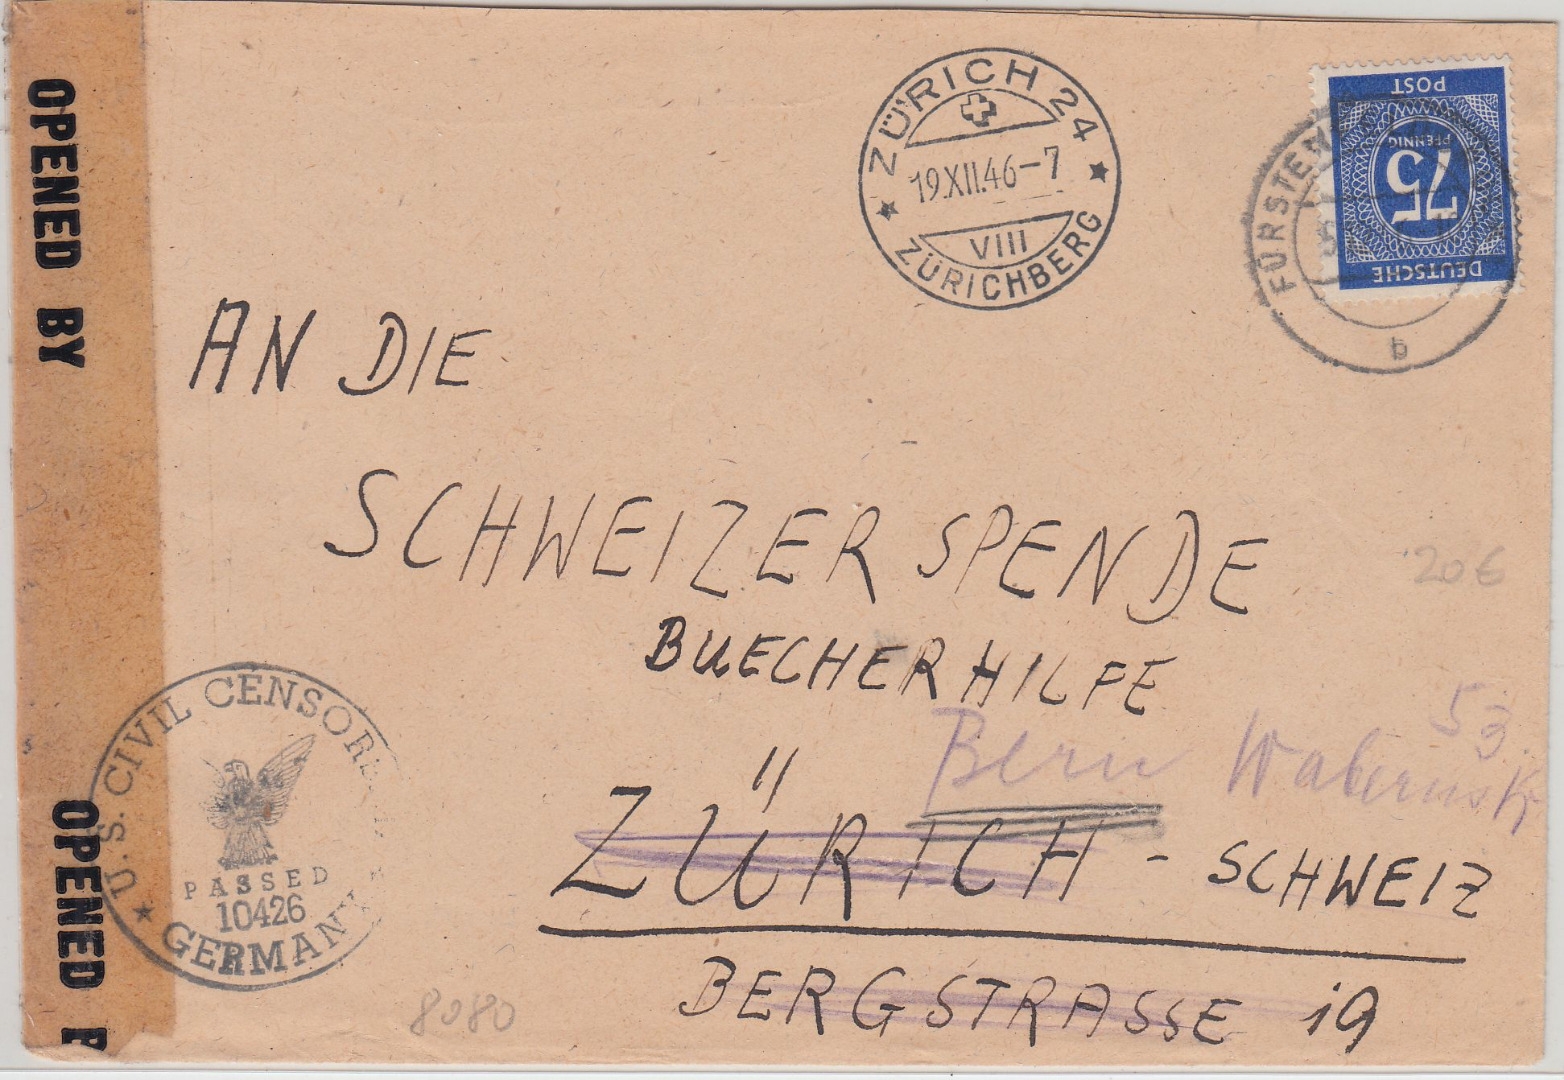 OPENED BY
OPENED
ZÜRICH 24
19.XII.46-7
VIII
ZÜRICHBERG
DEUTSCHE
75
PFENNIG
POST
b
AN DIE
SCHWEIZER SPENDE
BUECHERHILFE
Bern
53
ZÜRICH - SCHWEIZ
BERGSTRASSE 19
U.S. CIVIL
PASSED
10426
GERMANY
206
8080